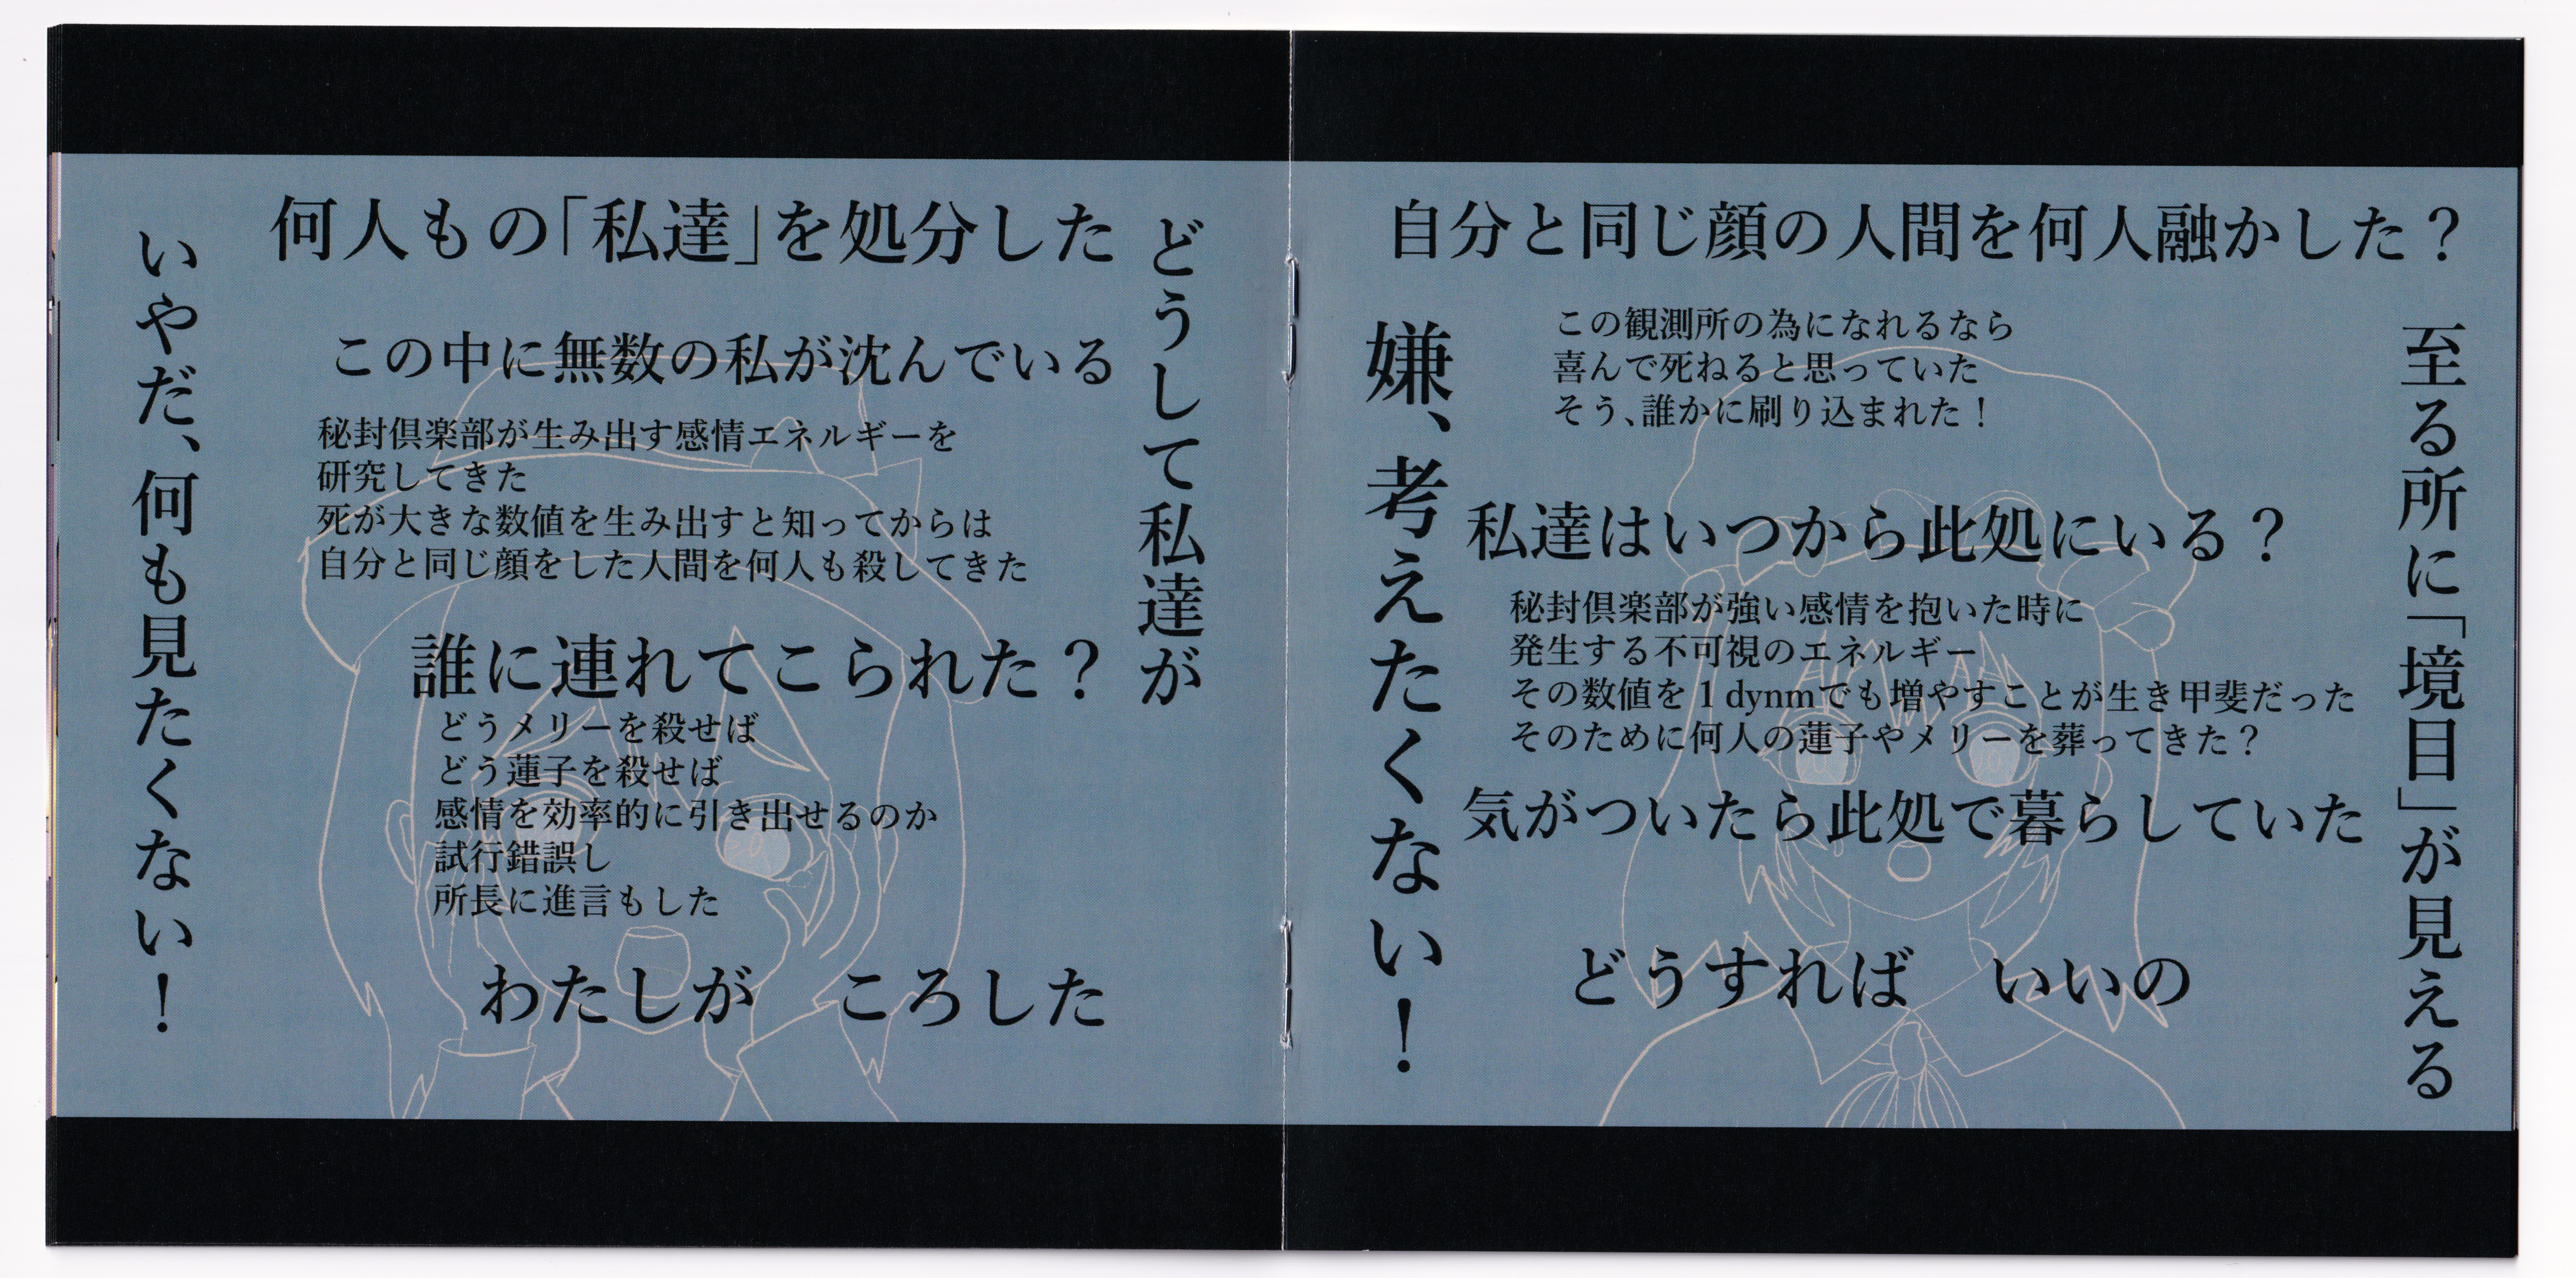 何人もの「私達」を処分した
どうして私達が
この中に無数の私が沈んでいる
秘封倶楽部が生み出す感情エネルギーを
研究してきた
死が大きな数値を生み出すと知ってからは
自分と同じ顔をした人間を何人も殺してきた
誰に連れてこられた？
どうメリーを殺せば
どう蓮子を殺せば
感情を効率的に引き出せるのか
試行錯誤し
所長に進言もした
わたしが　ころした
いやだ、何も見たくない！
自分と同じ顔の人間を何人融かした？
至る所に「境目」が見える
この観測所の為になれるなら
喜んで死ねると思っていた
そう、誰かに刷り込まれた！
私達はいつから此処にいる？
秘封倶楽部が強い感情を抱いた時に
発生する不可視のエネルギー
その数値を 1 dynmでも増やすことが生き甲斐だった
そのために何人の蓮子やメリーを葬ってきた？
気がついたら此処で暮らしていた
どうすれば　いいの
嫌、考えたくない！